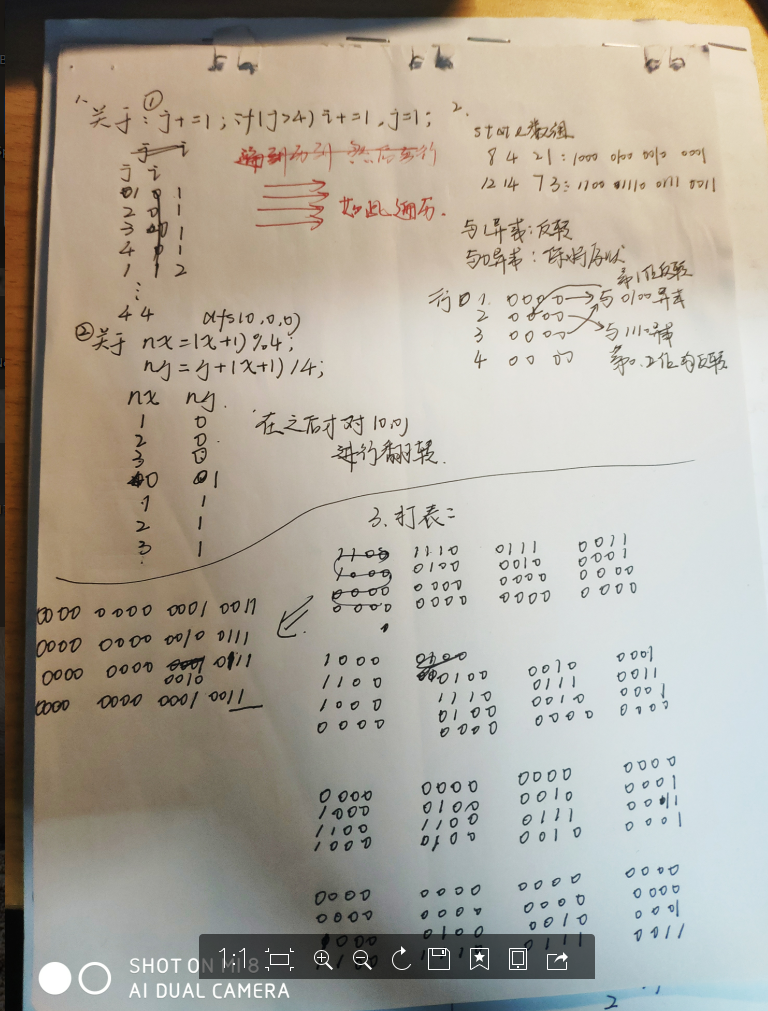 1. 关于: ① j+=1; if(j>4) i+=1, j=1;
j i
01 0 1
2 0 1
3 0 1
4 0 1
1 1 2
⋮
4 4
dfs(0,0,0)
② 关于 nx=(x+1)%4;
ny=y+(x+1)/4;
nx ny.
1 0
2 0
3 0
0 1
1 1
2 1
3 1
如此遍历.
在之后才对(0,0)
进行翻转.
2.
state数组
8 4 2 1: 1000 0100 0010 0001
12 14 7 3: 1100 01110 0111 0011
与1异或:反转
与0异或: 保持原状
第1位反转
行0 1. 0000 与0100异或
2 0000
3 0000 与1110异或
4 0000 第0.2位均反转
3. 打表:
1100 1110 0111 0011
1000 0100 0010 0001
0000 0000 0000 0000
0000 0000 0000 0000
0000 0000 0001 0011
0000 0000 0010 0111
0000 0000 0010 0111
0000 0000 0001 0011
1000 0100 0010 0001
1100 1110 0111 0011
1000 0100 0010 0001
0000 0000 0000 0000
0000 0000 0000 0000
1000 0100 0010 0001
1100 1100 0111 0011
1000 0100 0010 0001
0000 0000 0000 0000
0000 0000 0000 0000
1000 0100 0010 0001
0111 0011
1:1
SHOT ON MI 8
AI DUAL CAMERA
2